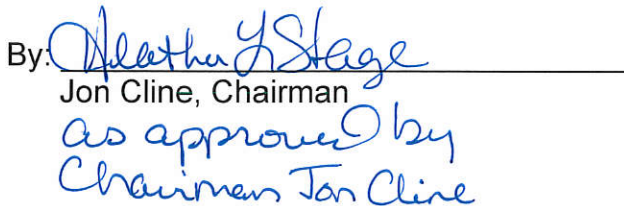 By: Heather L Stage
Jon Cline, Chairman
as approved by
Chairman Jon Cline